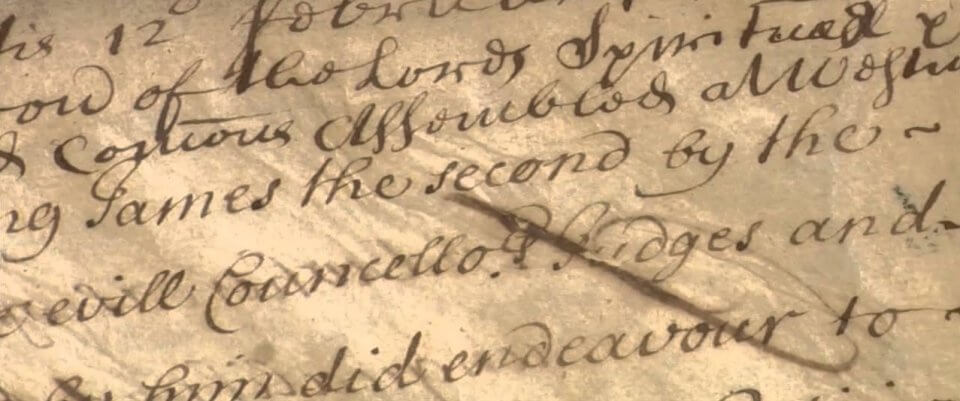 12o Februar
of the Lords Spirituall
& Comons Assembled at Westm
ng James the second by the ~
evill Councellors Judges and
by him did endeavour to ~